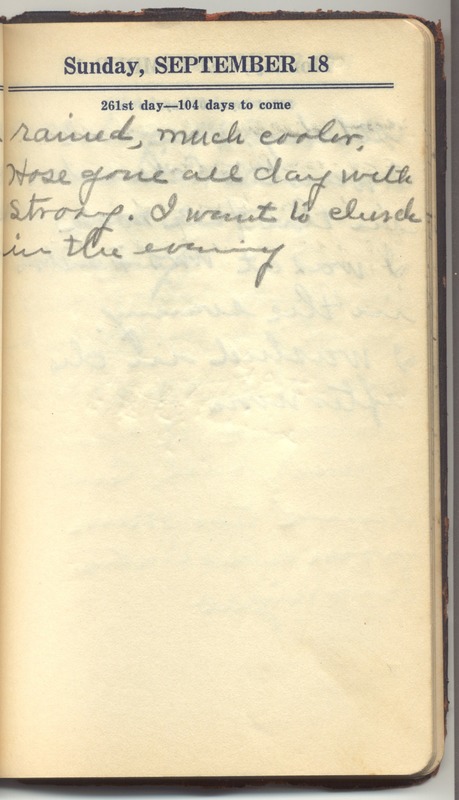 Sunday, SEPTEMBER 18
261st day—104 days to come
rained, much cooler,
Hose gone all day with
Strong. I went to church
in the evening